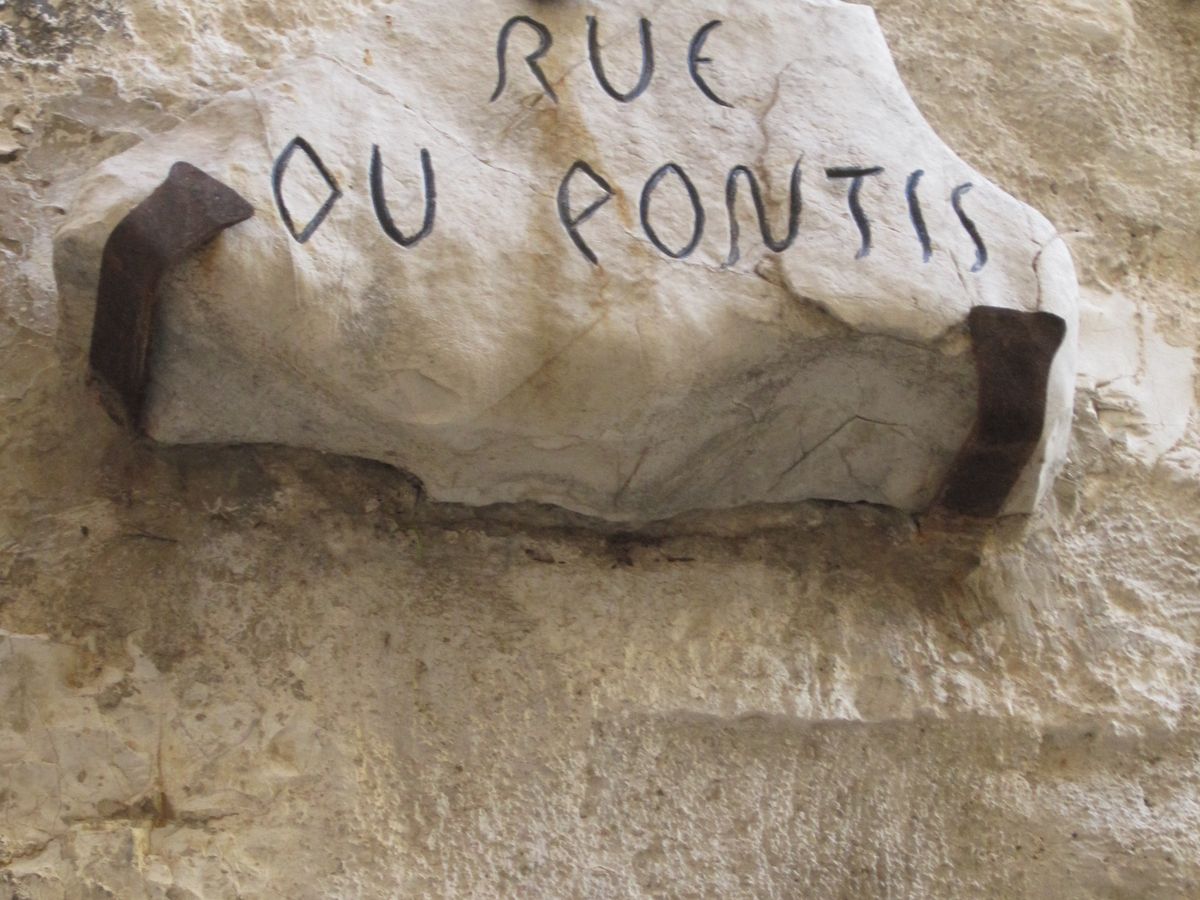 RUE
DU PONTIS